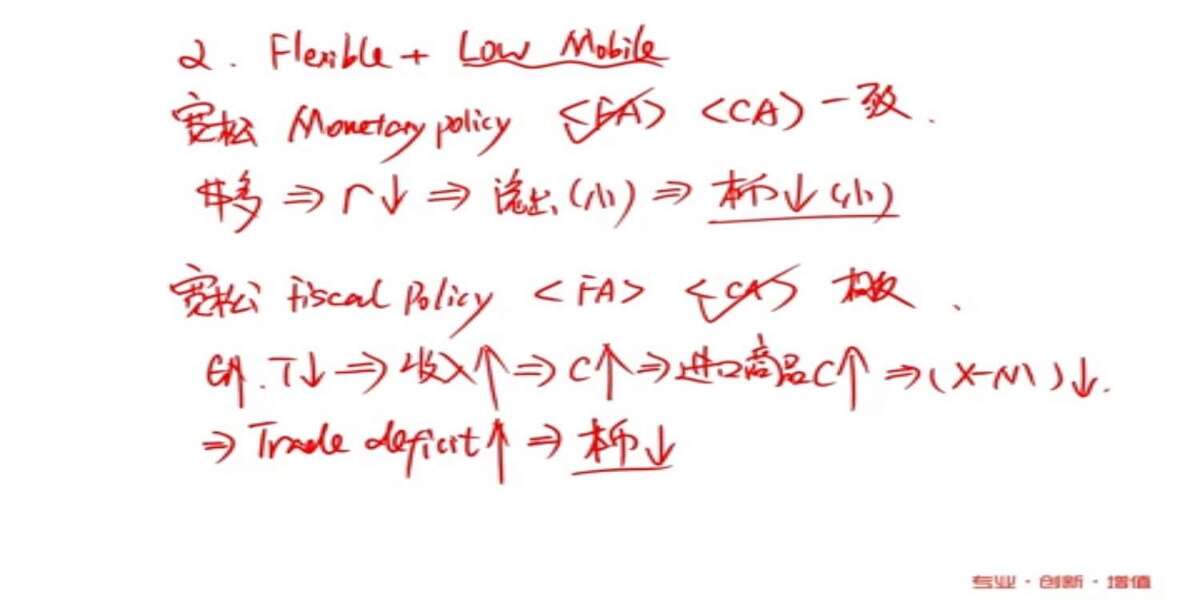 2. Flexible + Low Mobile
宽松 Monetary policy <FA> <CA> 一致.
$多 ⇒ r↓ ⇒ 流出(小) ⇒ 本币↓(小)
宽松 Fiscal Policy <FA> <CA> 相反.
G↑.T↓ ⇒ 收入↑ ⇒ C↑ ⇒ 进口商品C↑ ⇒ (X-M)↓.
⇒ Trade deficit↑ ⇒ 本币↓
专业·创新·增值